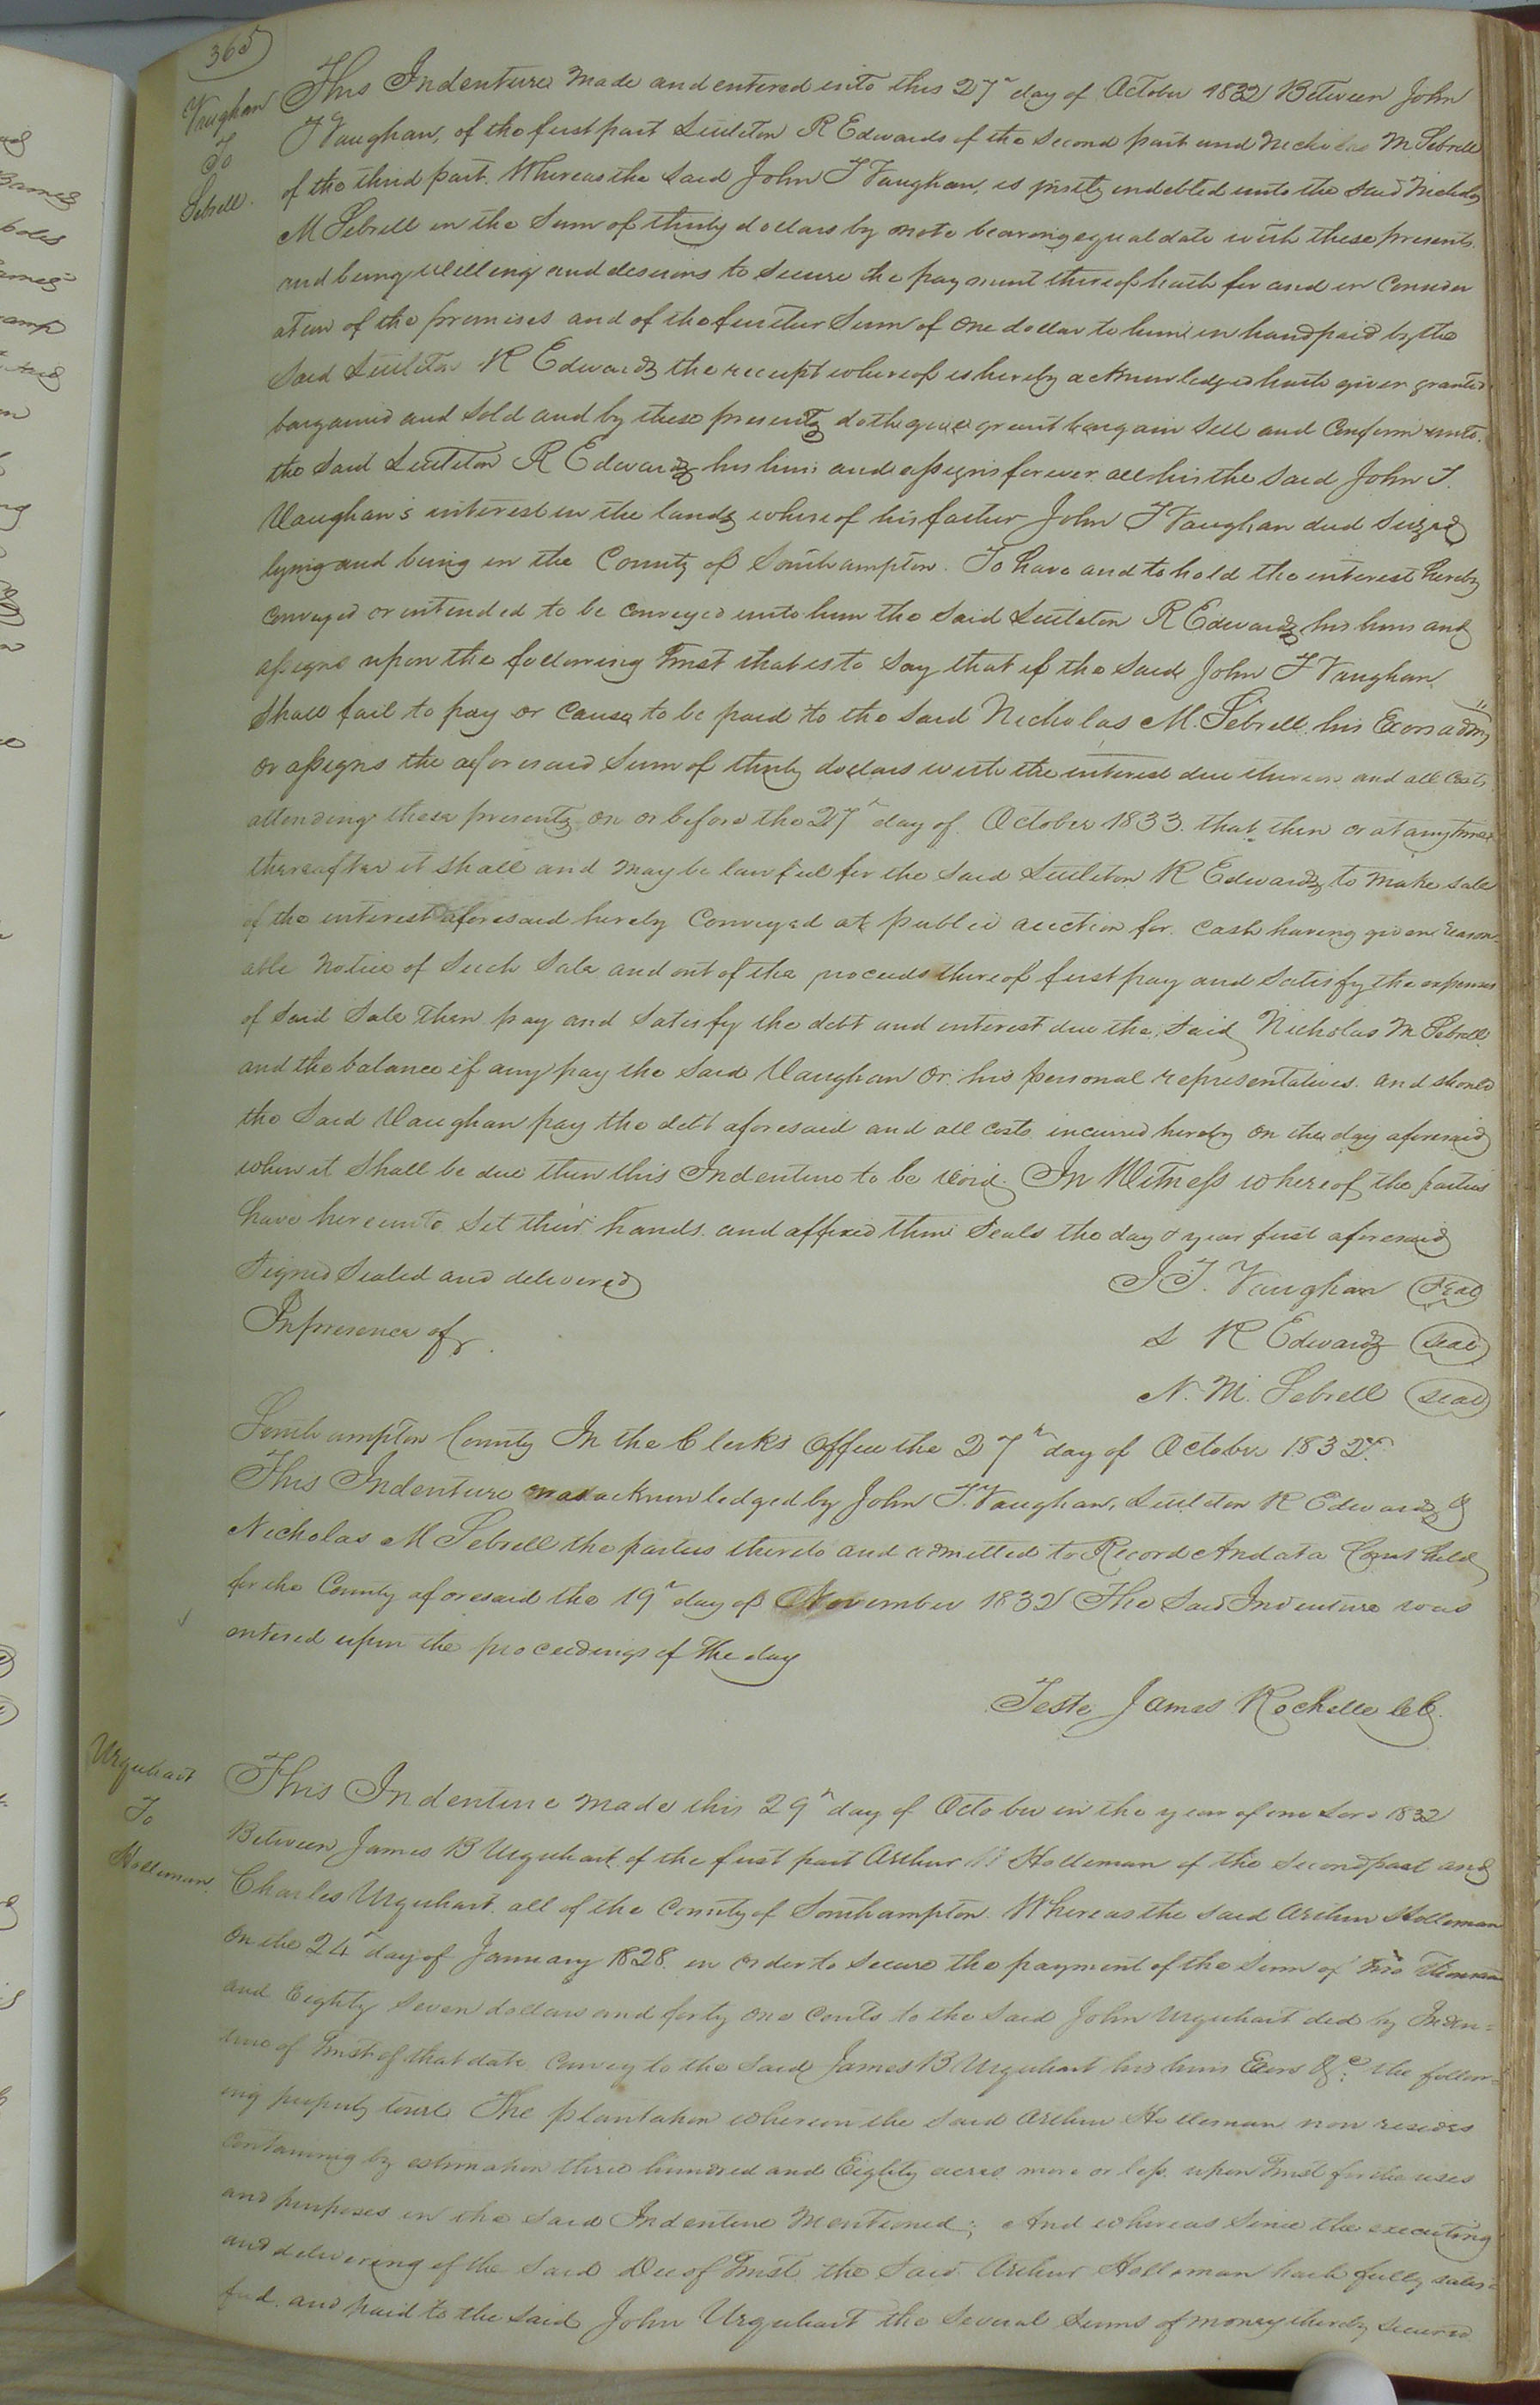 365
Vaughan
To
Sebrell.
This Indenture made and entered into this 27th day of October 1832 Between John
T Vaughan, of the first part Littleton R Edwards of the second part and Nicholas M. Sebrell
of the third part. Whereas the said John T Vaughan, is justly indebted unto the said Nicholas
M Sebrell in the sum of thirty dollars by note bearing equal date with these presents
and being willing and desirous to secure the payment thereof hath for and in Consider
ation of the premises and of the further Sum of one dollar to him in hand paid by the
said Littleton R Edwards the receipt whereof is hereby acknowledged hath given granted
bargained and sold and by these presents doth give grant bargain sell and Confirm unto
the said Littleton R Edwards his heirs and assigns forever all his the said John T.
Vaughan's interest in the lands whereof his father John T Vaughan died seized
lying and being in the County of Southampton. To have and to hold the interest hereby
conveyed or intended to be conveyed unto him the said Littleton R Edwards his heirs and
assigns upon the following Trust that is to say that if the said John T Vaughan
shall fail to pay or cause to be paid to the said Nicholas M. Sebrell his Exors admrs
or assigns the aforesaid sum of thirty dollars with the interest due thereon and all Costs
attending these presents on or before the 27th day of October 1833. that then or at any time
thereafter it shall and may be lawful for the said Littleton R Edwards to make sale
of the interest aforesaid hereby Conveyed at public auction for cash having given reason-
able notice of such sale and out of the proceeds thereof first pay and satisfy the expenses
of said sale then pay and satisfy the debt and interest due the said Nicholas M Sebrell
and the balance if any pay the said Vaughan or his personal representatives. and should
the said Vaughan pay the debt aforesaid and all costs incurred hereby on the day aforesaid
when it shall be due then this Indenture to be void. In Witness whereof the parties
have hereunto set their hands and affixed their seals the day & year first aforesaid
Signed Sealed and delivered
In presence of
J T. Vaughan seal
L R Edwards seal
N. M. Sebrell seal
Southampton County In the Clerks Office the 27th day of October 1832.
This Indenture was acknowledged by John T. Vaughan, Littleton R Edwards &
Nicholas M Sebrell the parties thereto and admitted to Record And at a Court held
for the County aforesaid the 19th day of November 1832 The said Indenture was
entered upon the proceedings of the day
Teste James Rochelle CC.
Urquhart
To
Holleman.
This Indenture made this 29th day of October in the year of our Lord 1832
Between James B Urquhart of the first part Arthur Holleman of the second part and
Charles Urquhart. all of the County of Southampton. Whereas the said Arthur Holleman
on the 24th day of January 1828. in order to secure the payment of the sum of Two Thousand
and Eighty Seven dollars and forty one Cents to the said John Urquhart did by Inden-
ture of Trust of that date Convey to the said James B Urquhart his heirs Exors &c. the follow-
ing property towit The plantation whereon the said Arthur Holleman now resides
Containing by estimation three hundred and Eighty acres more or less upon Trust for the uses
and purposes in the said Indenture Mentioned; And whereas since the executing
and delivering of the said Dee of Trust the said Arthur Holleman hath fully satis-
fied and paid to the said John Urquhart the several sums of money thereby secured